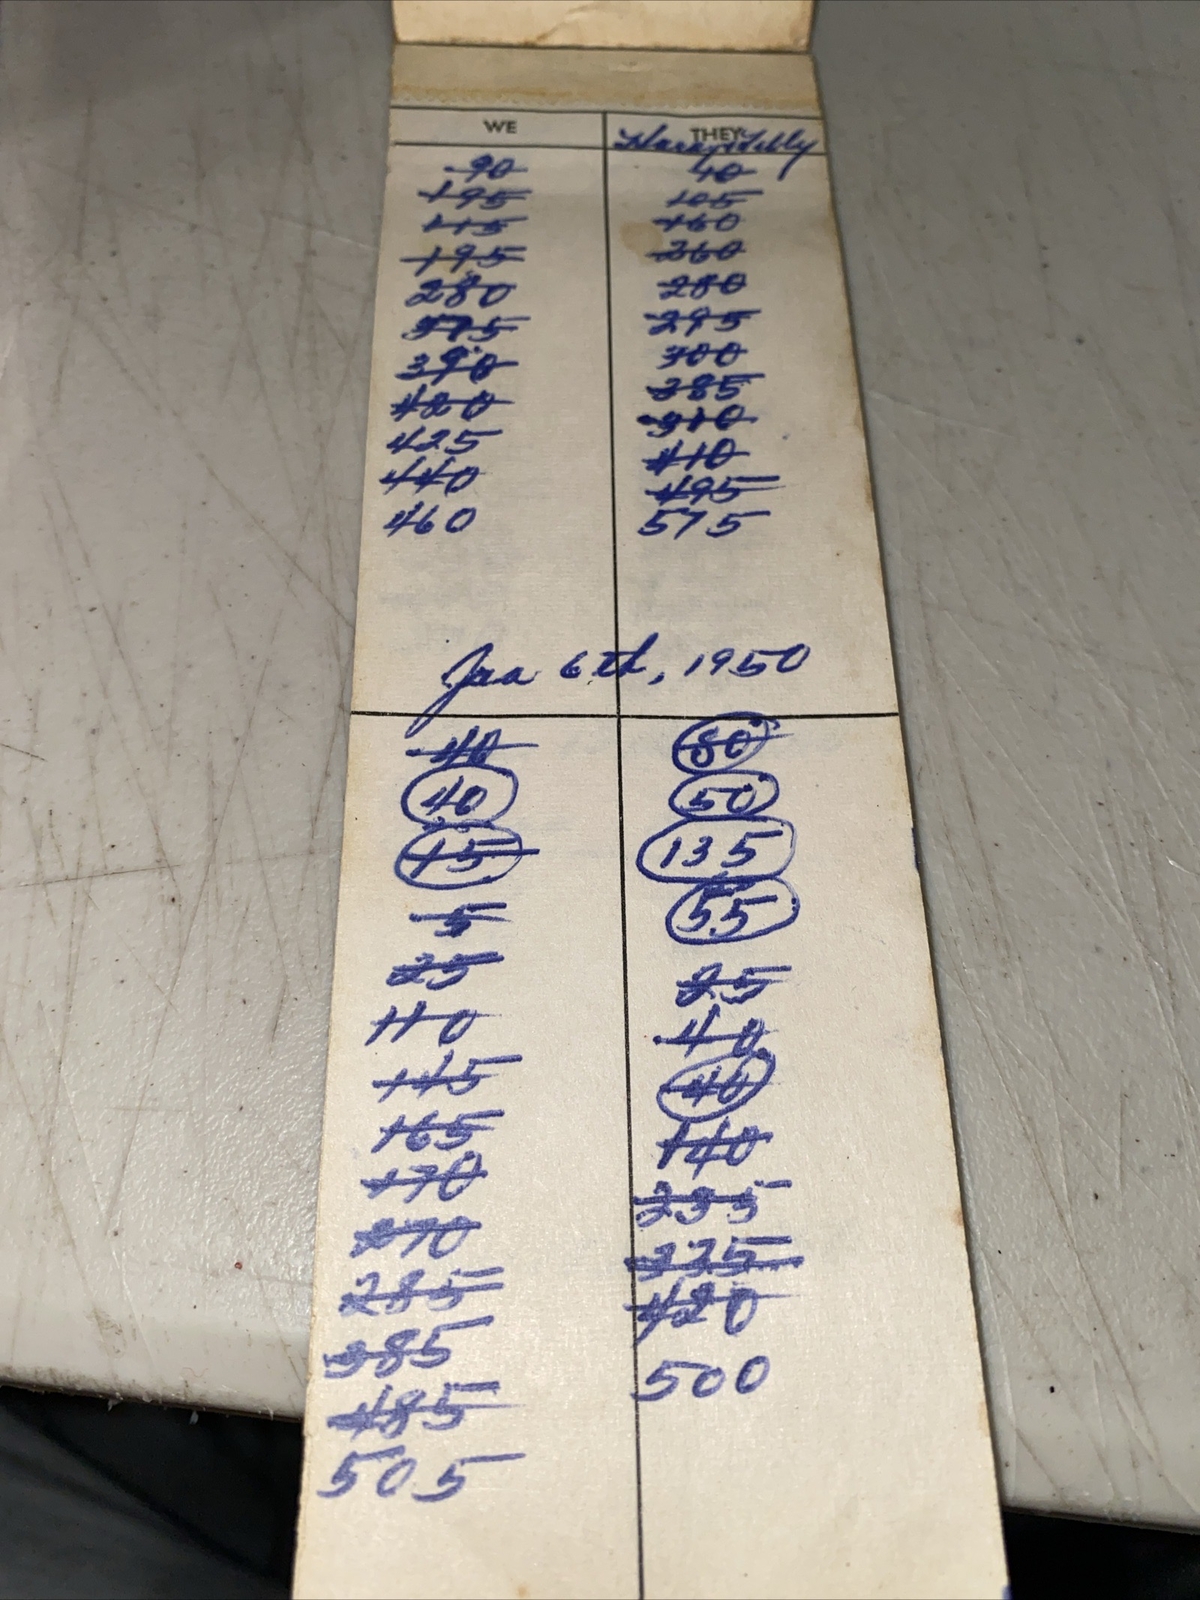 WE THEY
90 40
195 105
115 160
195 260
280 280
375 295
390 300
420 385
425 310
440 410
460 495
575
Jan 6th, 1950
40 80
40 50
15 135
5 55
25 25
110 40
145 40
165 140
170 235
270 335
285 420
385 500
485
505